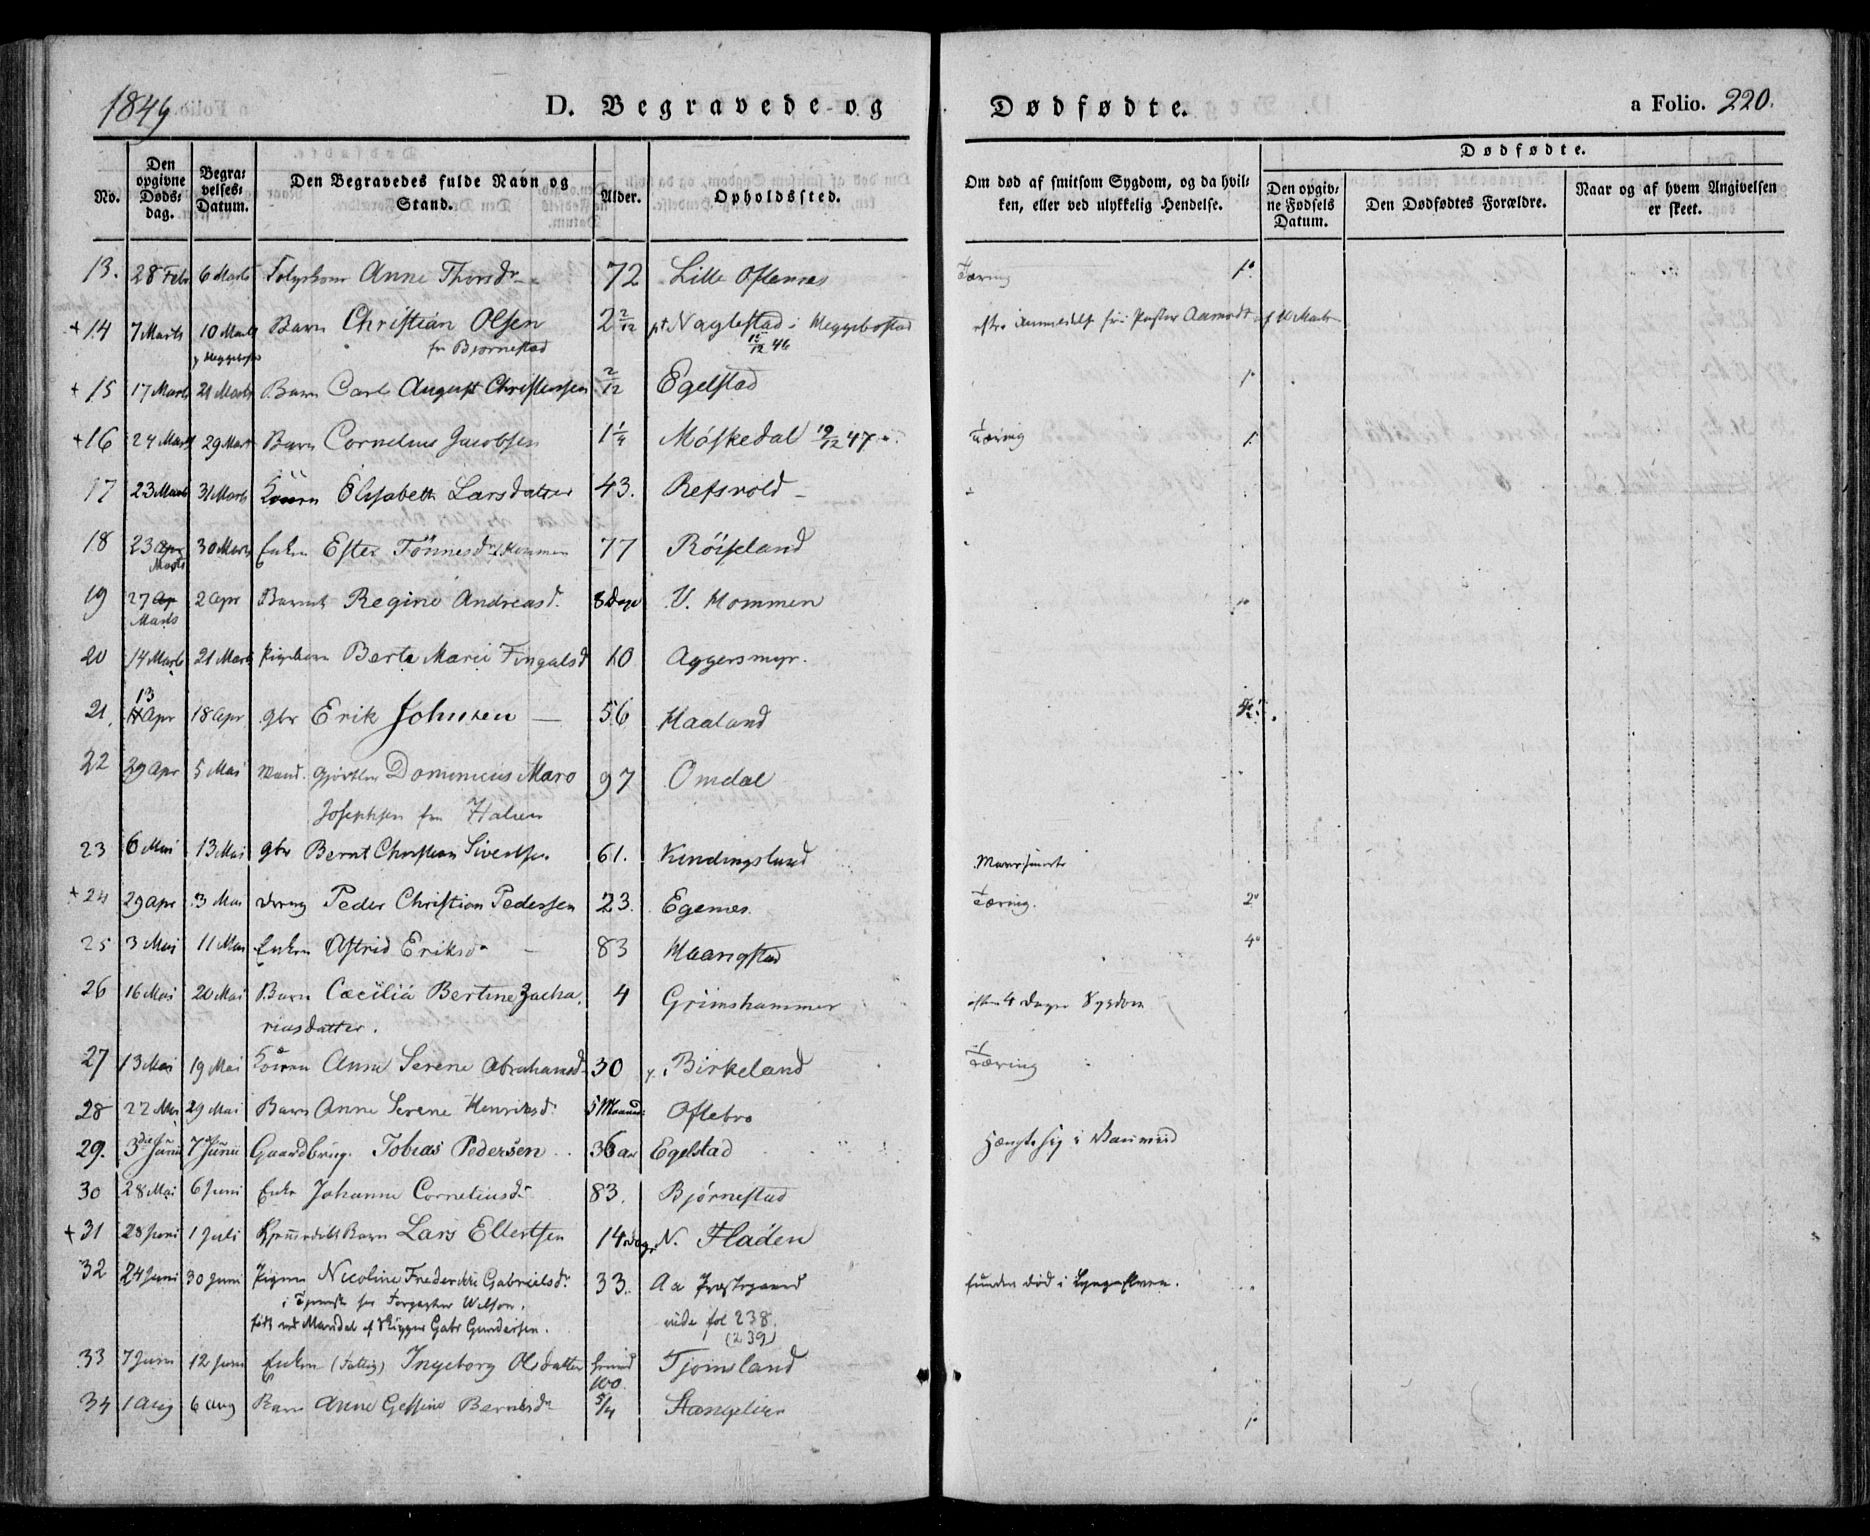 1849
D. Begravede og Dødfødte.
a Folio. 220.
No.
Den opgivne Døds-dag.
Begra-velses-Datum.
Den Begravedes fulde Navn og Stand.
Alder.
Opholdssted.
Om død af smitsom Sygdom, og da hvil-ken, eller ved ulykkelig Hendelse.
Dødfødte.
Den opgiv-ne Fødsels Datum.
Den Dødfødtes Forældre.
Naar og af hvem Angivelsen er skeet.
13. 28 Feb 6 Marts Anne Thorsdr 72 Lille Oftenes Tæring 1°
+ 14 7 Marts 10 Marts Barn Christian Olsen 2 2/12 pt Naglestad i Heggebostad efter Anmeldelse fra Pastor Aamodt af 11 Marts
fra Bjornestad 46
+ 15 17 Marts 21 Marts Barn Carl August Christensen 2/12 Egelstad 1°
+ 16 24 Marts 29 Mart Barn Cornelius Jacobsen 1 1/4 Møskedal 19/12 47 Tæring 1
17 23 Marts 31 Marts Konen Elisabeth Larsdatter 43. Refsvold
18 23 Apr 30 Marts Enken Ester Tönnesdr Hommen 77 Röiseland
Marts
19 27 Ap 2 Apr Barnet Regine Andreasd. 8 Dage V. Hommen 1°
Marts
20 14 Marts 21 Marts Pigebarn Berte Marie Fingalsd 10 Aggersmyr.
13
21, 14 Apr 18 Apr gbr Erik Johnsen 56 Haaland
22 29 Apr 5 Mai Dominicus Maro 97 Omdal
Josephsen fra Halsen
23 6 Mai 13 Mai gbr Bernt Christian Sivertsen 61. Kindingsland
+ 24 29 Apr 3 Mai dreng Peder Christian Pedersen 23. Egenes Tæring. 2°
25 3 Mai 11 Mai Enken Astrid Eriksdr 83 Haangstad 4°
26 16 Mai 20 Mai Barn Cæcilia Bertine Zacha 4 Grimshammer efter 4 Dages Sygdom
riasdatter.
27 13 Mai 19 Mai Konen Anne Serene Abrahamsd 30 Birkeland Tæring
28 22 Mai 29 Mai Barn Anne Serene Henriksd. 5 Maaned Oftebro
29. 3die Junii 7de Junii Gaardbrug. Tobias Pedersen 36 aar Egelstad Hængte sig i
30 28 Mai 6 Juni Enke Johanne Corneliusdr 83. Bjørnestad
+ 31 28 Juni 1 Juli Hjemmedøbt Barn Lars Ellertsen 14 dage N. Fladen
32 24 Juni 30 Juni Pigen Nicoline Frederikke Gabrielsdr 33. Aa Præstegaard funden død i Lyngselven.
i Tjeneste hos Wilson. vide fol 238.
født ved Mandal af Skipper Gabr Gundersen. (239)
33 7 Juni 12 Juni Enken (Fattig) Ingeborg Olsdatter 100 Tjomsland
34 1 Aug 6 Aug Barn Anne Gessine Berntsdr 5/4 Stangelier 1°